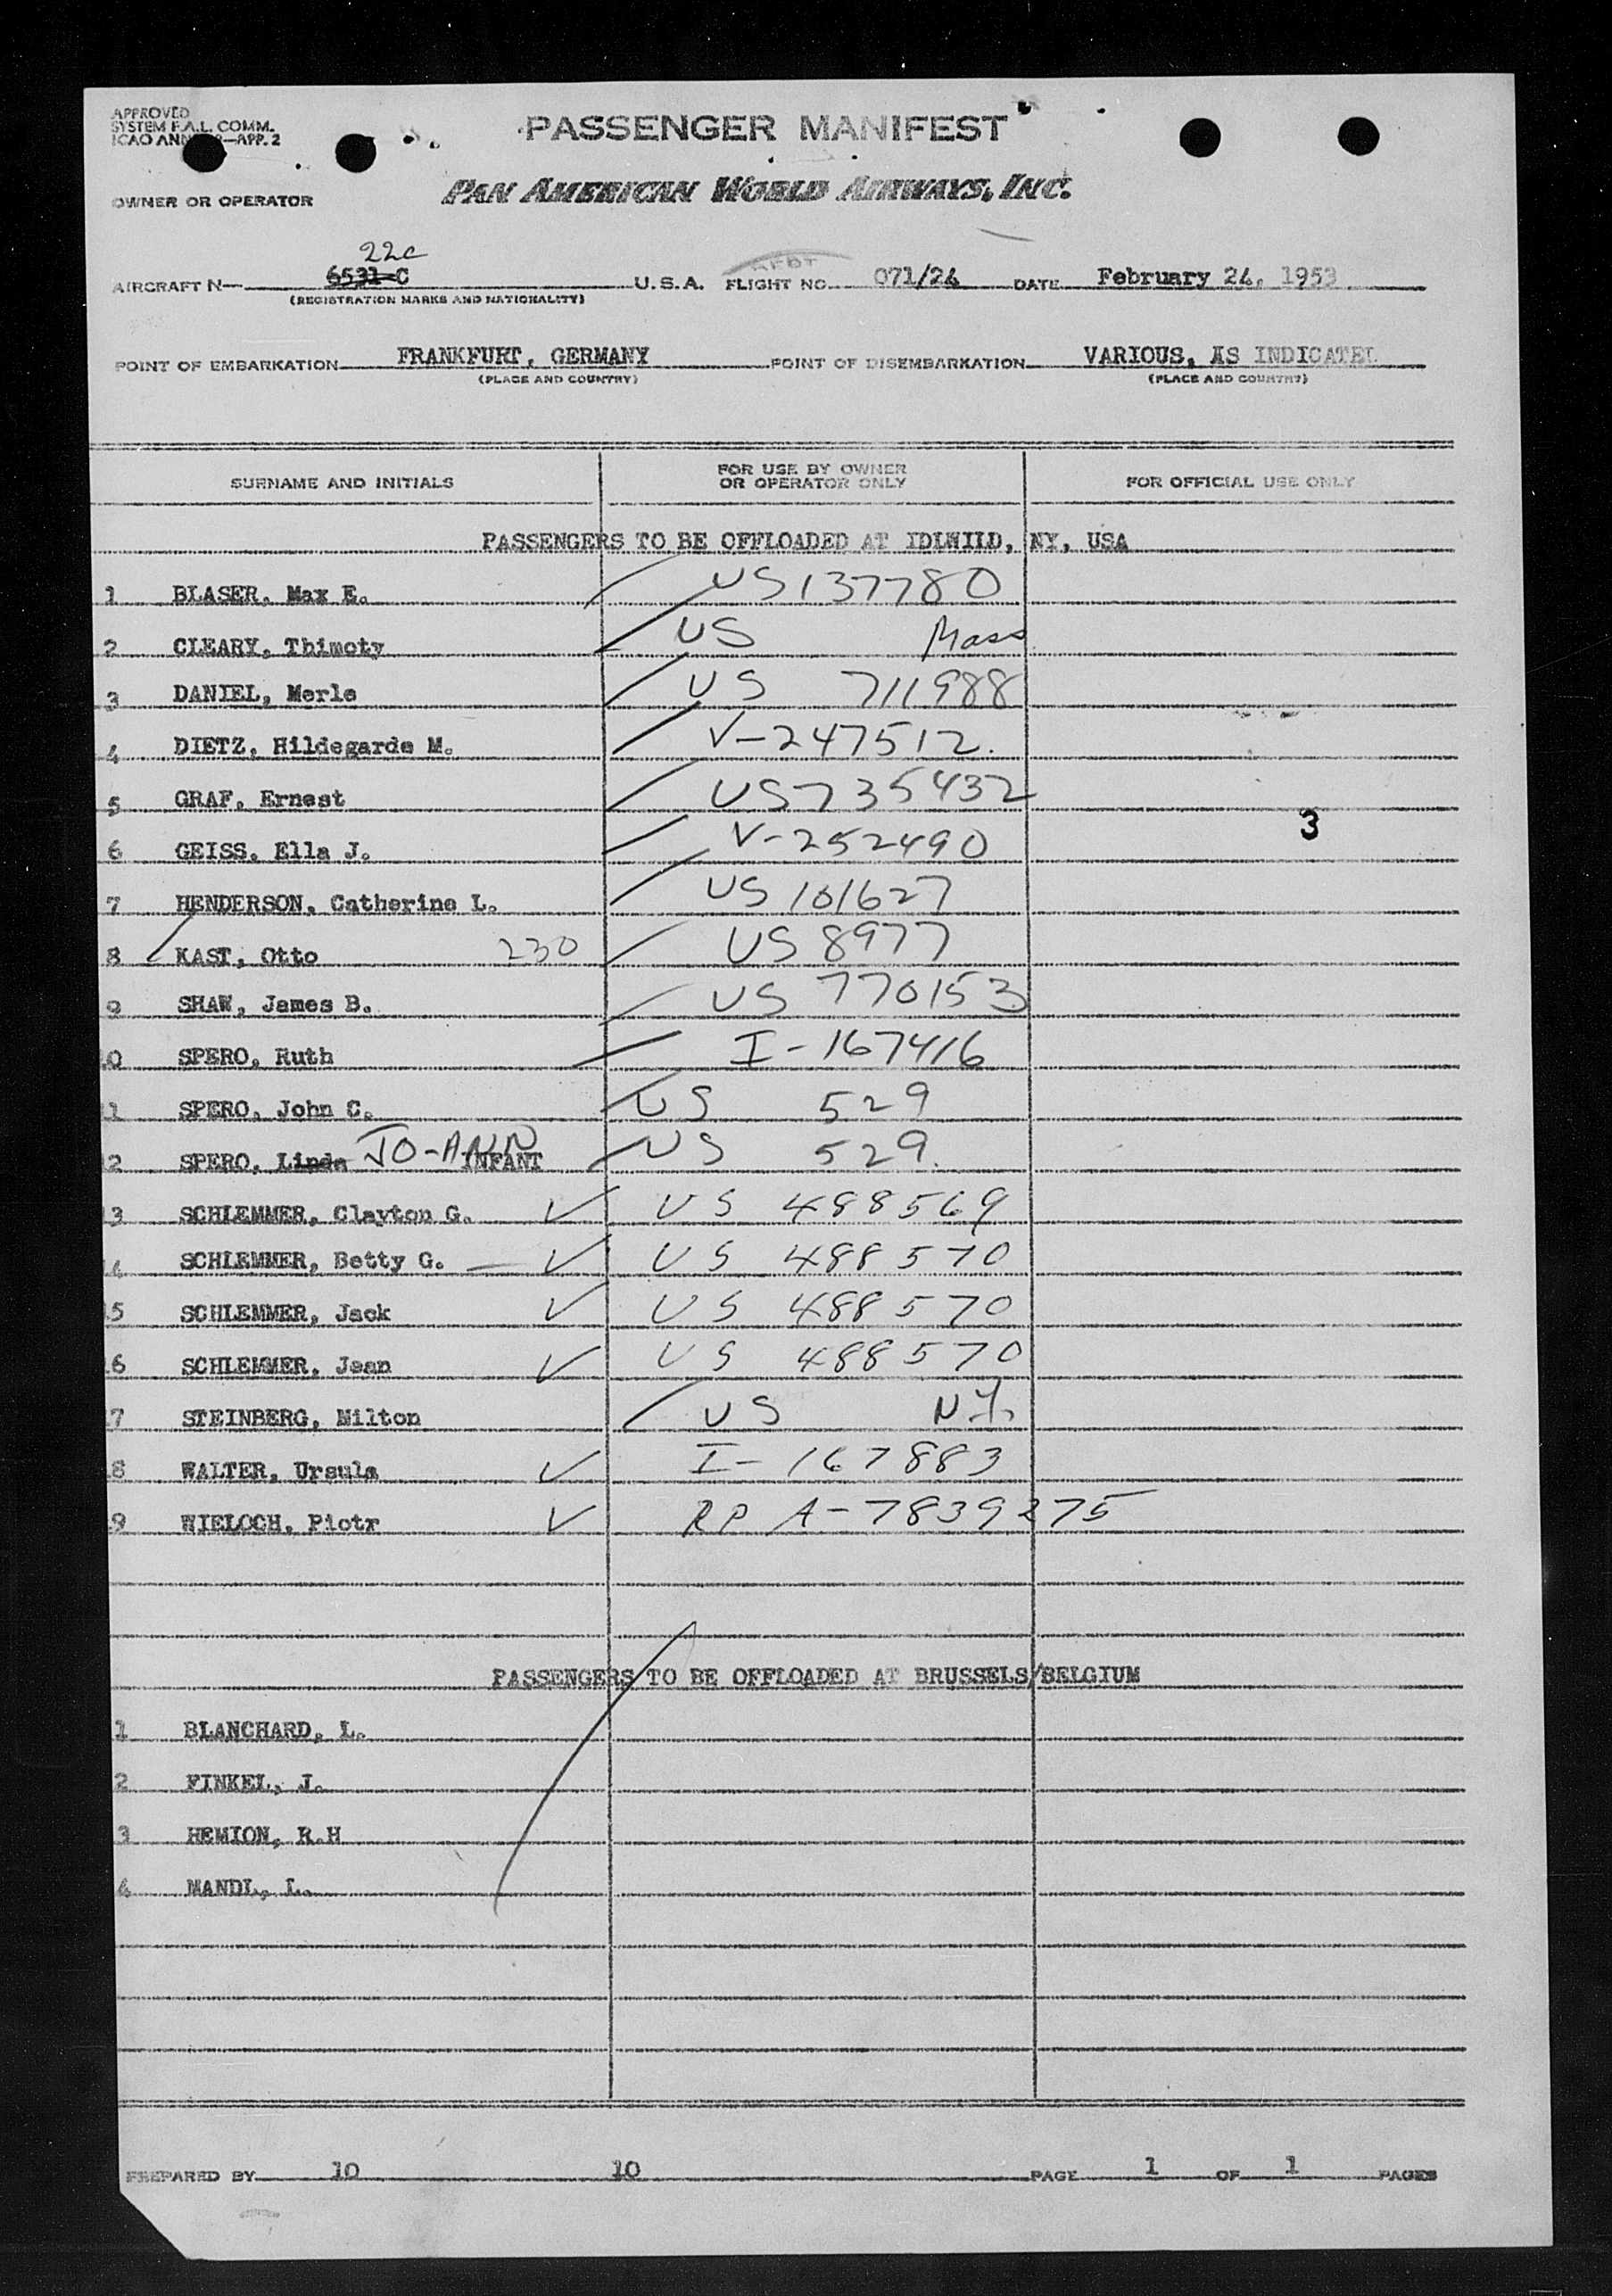 APPROVED
SYSTEM F.A.L. COMM.
ICAO ANN 9—APP. 2
PASSENGER MANIFEST
OWNER OR OPERATOR PAN AMERICAN WORLD AIRWAYS, INC.
22c
AIRCRAFT N— 6531-C U.S.A. FLIGHT NO. 071/24 DATE February 24, 1953
(REGISTRATION MARKS AND NATIONALITY)
POINT OF EMBARKATION FRANKFURT, GERMANY POINT OF DISEMBARKATION VARIOUS, AS INDICATED
(PLACE AND COUNTRY) (PLACE AND COUNTRY)
SURNAME AND INITIALS FOR USE BY OWNER OR OPERATOR ONLY FOR OFFICIAL USE ONLY
PASSENGERS TO BE OFFLOADED AT IDLWILD, NY, USA
1 BLASER, Max E. US 137780
2 CLEARY, Thimoty US Mass
3 DANIEL, Merle US 711988
4 DIETZ, Hildegarde M. V-247512.
5 GRAF, Ernest US 735432
3
6 GEISS, Ella J. V-252490
7 HENDERSON, Catherine L. US 101627
8 KAST, Otto 230 US 8977
9 SHAW, James B. US 770153
0 SPERO, Ruth I-167416
1 SPERO, John C. US 529
2 SPERO, Linda JO-ANN INFANT US 529.
3 SCHLEMMER, Clayton G. ✓ US 488569
4 SCHLEMMER, Betty G. ✓ US 488570
5 SCHLEMMER, Jack ✓ US 488570
6 SCHLEMMER, Jean ✓ US 488570
7 STEINBERG, Milton US N.Y.
8 WALTER, Ursula ✓ I-167883
9 WIELOCH, Piotr ✓ RP A-7839275
PASSENGERS TO BE OFFLOADED AT BRUSSELS/BELGIUM
1 BLANCHARD, L.
2 FINKEL, J.
3 HEMION, R.H
4 MANDL, L.
PREPARED BY 10 10 PAGE 1 OF 1 PAGES